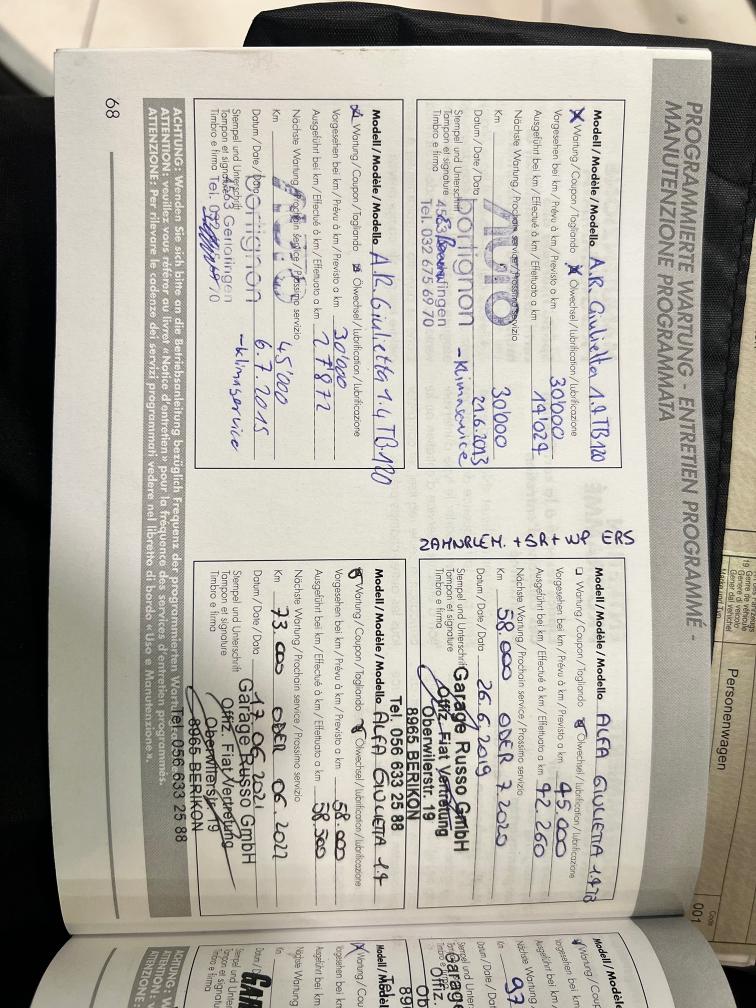 PROGRAMMIERTE WARTUNG - ENTRETIEN PROGRAMMÉ -
MANUTENZIONE PROGRAMMATA
Modell / Modèle / Modello A.R. Giulietta 1.4 TB 120
Wartung / Coupon / Tagliando Ölwechsel / Lubrification / Lubrificazione
Vorgesehen bei km / Prévu à km / Previsto a km 30'000
Ausgeführt bei km / Effectué à km / Effettuato a km 17'024
Nächste Wartung / Prochain service / Prossimo servizio
Km 30'000
Datum / Date / Data 21.6.2013
Stempel und Unterschrift
Tampon et signature
Timbro e firma
Auto
bortignon
Tel. 032 675 69 70
-Klimaservice
Modell / Modèle / Modello A.R. Giulietta 1.4 TB 120
Wartung / Coupon / Tagliando Ölwechsel / Lubrification / Lubrificazione
Vorgesehen bei km / Prévu à km / Previsto a km 30'000
Ausgeführt bei km / Effectué à km / Effettuato a km 27'872
Nächste Wartung / Prochain service / Prossimo servizio
Km 45'000
Datum / Date / Data 6.7.2015
Stempel und Unterschrift
Tampon et signature
Timbro e firma
bortignon
4563 Gerlafingen
Tel.
-Klimaservice
ZAHNRIEM. + SR + WP ERS
Modell / Modèle / Modello ALFA GIULIETTA 1.4 TB
Wartung / Coupon / Tagliando Ölwechsel / Lubrification / Lubrificazione
Vorgesehen bei km / Prévu à km / Previsto a km 45.000
Ausgeführt bei km / Effectué à km / Effettuato a km 42.260
Nächste Wartung / Prochain service / Prossimo servizio
Km 58.000 ODER 7 2020
Datum / Date / Data 26.6.2019
Stempel und Unterschrift
Tampon et signature
Timbro e firma
Garage Russo GmbH
Offiz. Fiat Vertretung
Oberwilerstr. 19
8965 BERIKON
Tel. 056 633 25 88
Modell / Modèle / Modello ALFA GIULIETTA 1.4
Wartung / Coupon / Tagliando Ölwechsel / Lubrification / Lubrificazione
Vorgesehen bei km / Prévu à km / Previsto a km 58.000
Ausgeführt bei km / Effectué à km / Effettuato a km 58.300
Nächste Wartung / Prochain service / Prossimo servizio
Km 73.000 ODER 06.2022
Datum / Date / Data 17.06.2021
Stempel und Unterschrift
Tampon et signature
Timbro e firma
Garage Russo GmbH
Offiz. Fiat Vertretung
Oberwilerstr. 19
8965 BERIKON
Tel. 056 633 25 88
ACHTUNG: Wenden Sie sich bitte an die Betriebsanleitung bezüglich Frequenz der programmierten
ATTENTION: veuillez vous référer au livret «Notice d'entretien» pour la fréquence des services d'entretien programmés.
ATTENZIONE: Per rilevare le cadenze dei servizi programmati vedere nel libretto di bordo «Uso e Manutenzione».
68
Personenwagen
Code
001